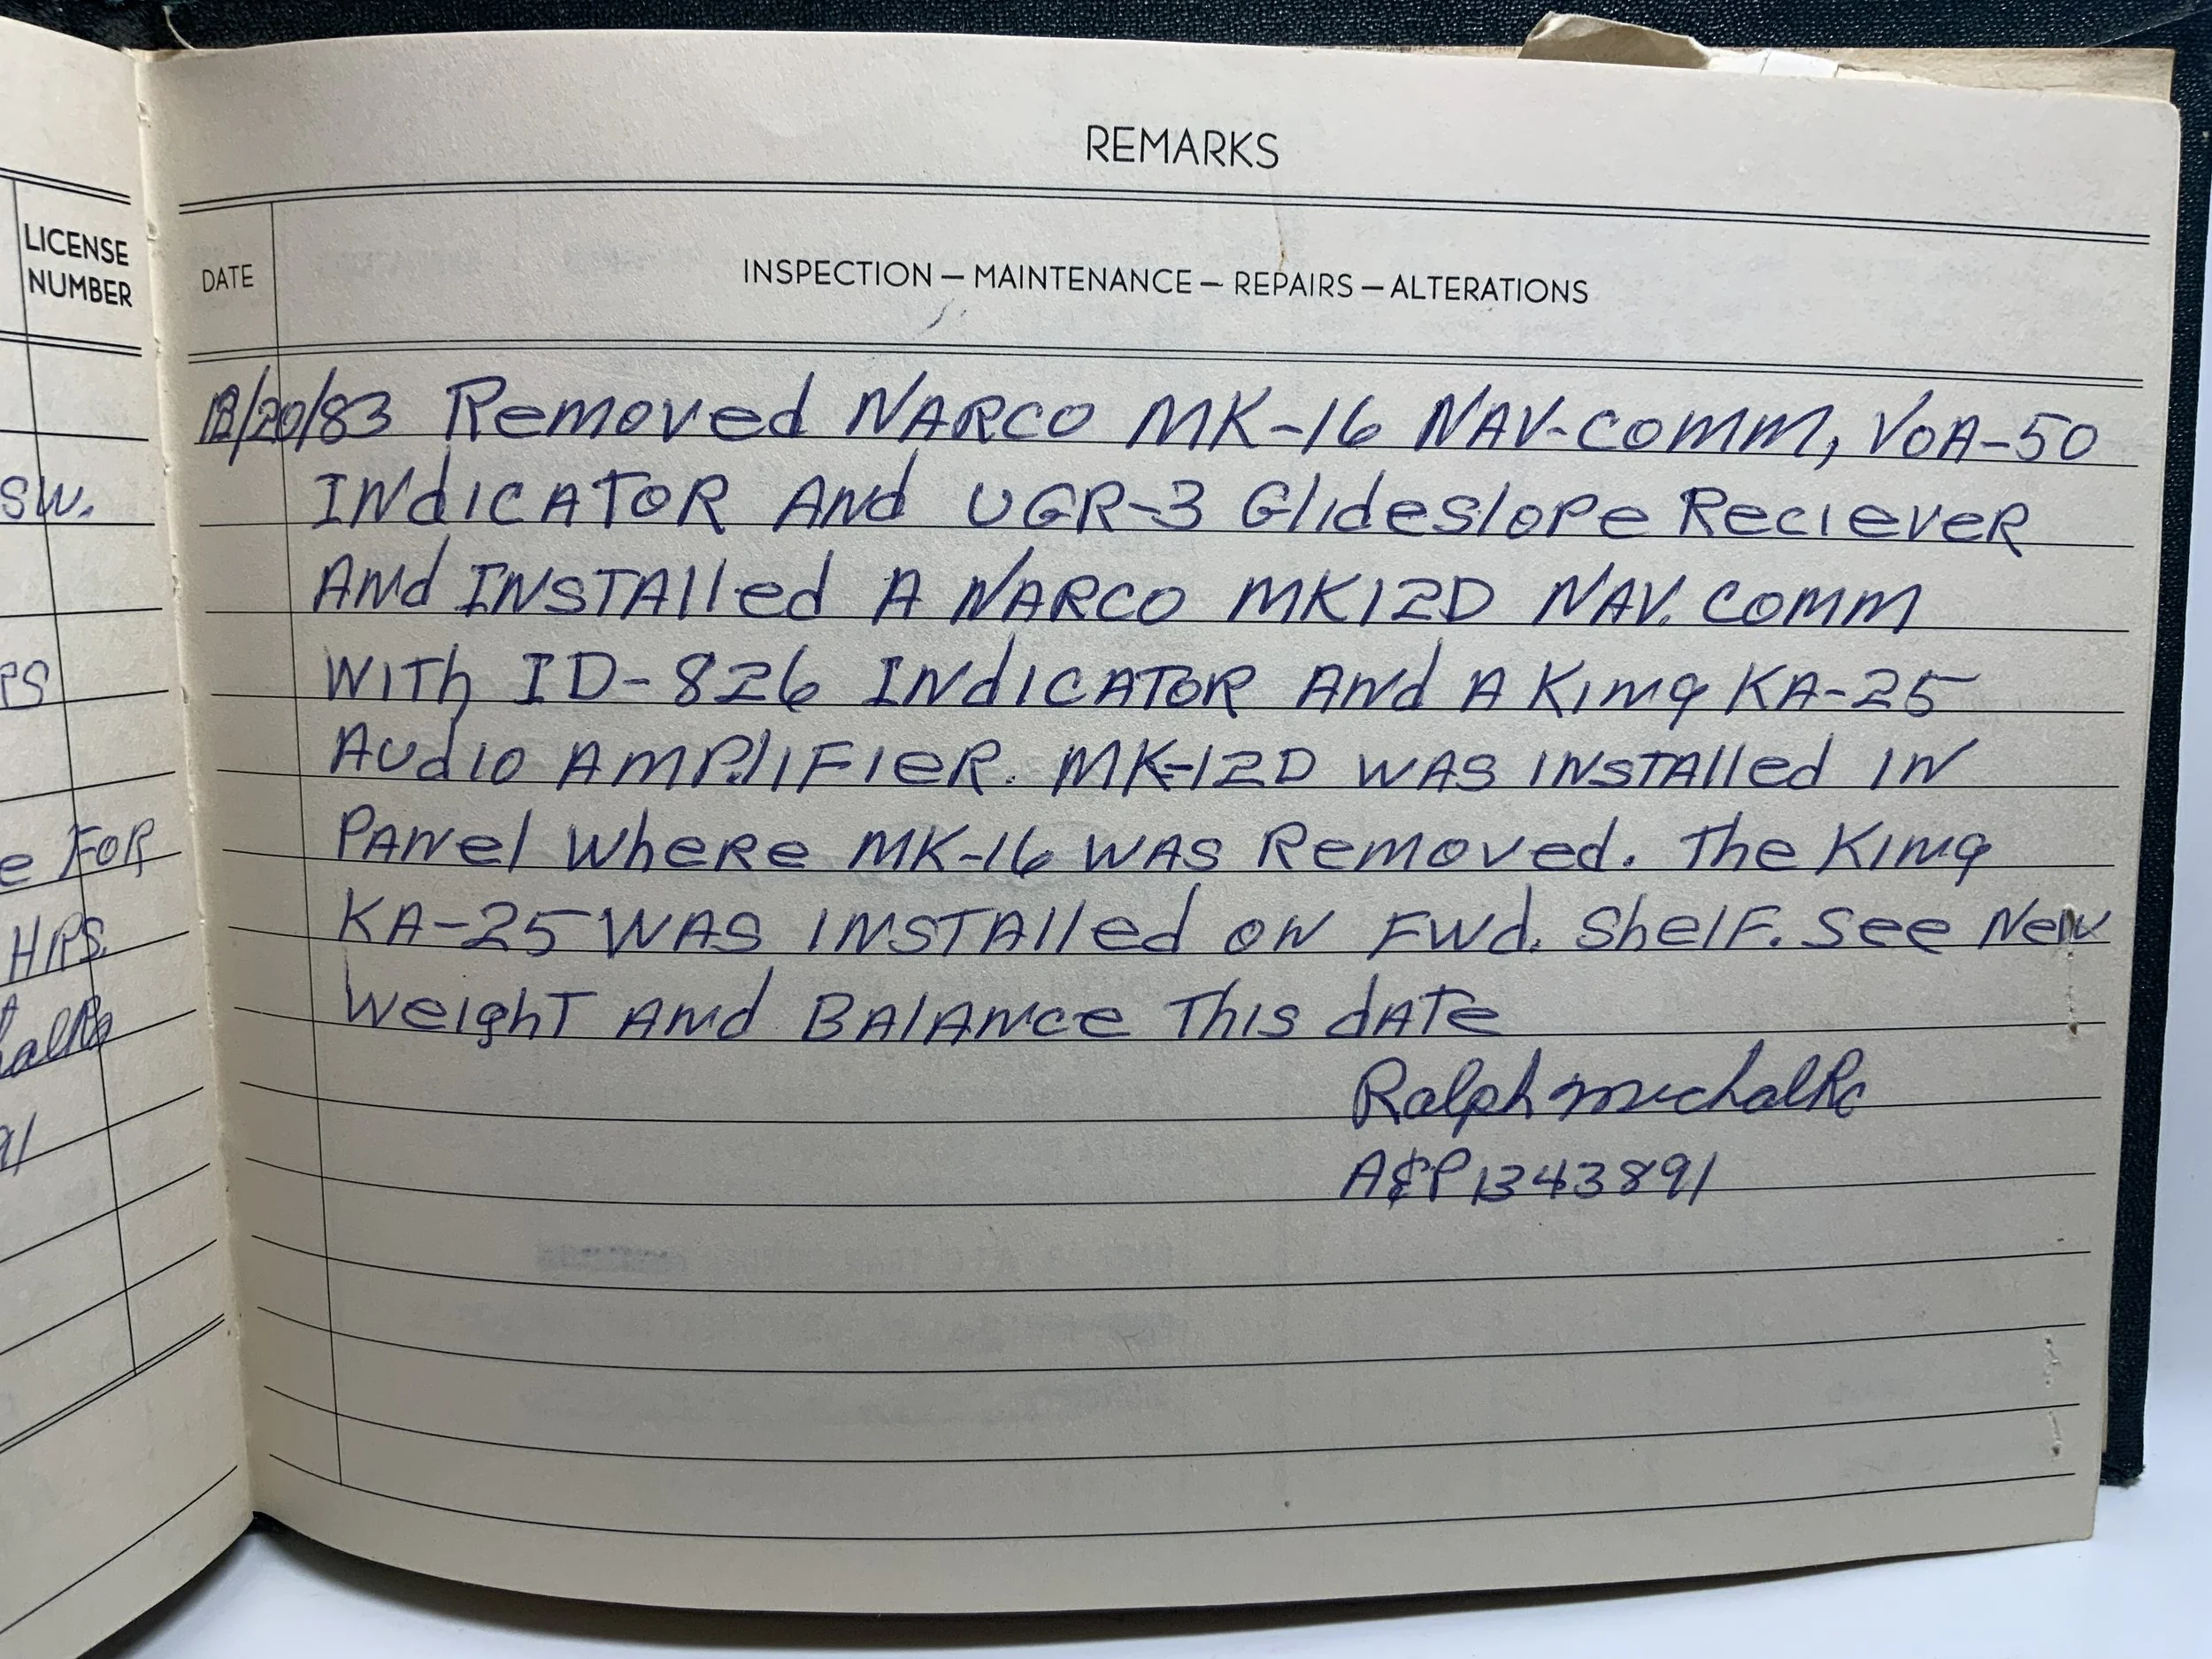 REMARKS
LICENSE
NUMBER
DATE
INSPECTION — MAINTENANCE — REPAIRS — ALTERATIONS
12/20/83 Removed NARCO MK-16 NAV-COMM, VOA-50
INdICATOR ANd UGR-3 GlideSlope RecieveR
ANd INSTAlled A NARCO MK12D NAV. COMM
WITh ID-826 INdICATOR ANd A King KA-25
AUdIO AMPlIFIeR. MK-12D WAS INSTAlled IN
PANel WheRe MK-16 WAS Removed. The King
KA-25 WAS INSTAlled ON FWd. ShelF. See New
WeighT ANd BAlANce This dATe
Ralph
A&P 1343891
SW.
RS
e FOR
HRS.
91